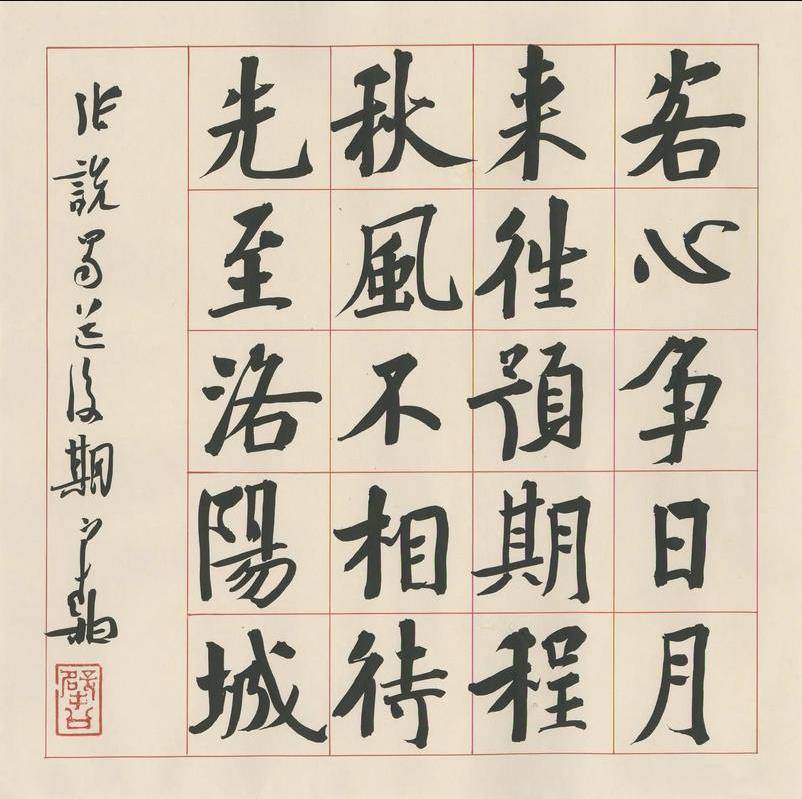 客心争日月
来往預期程
秋風不相待
先至洛陽城
張說蜀道後期